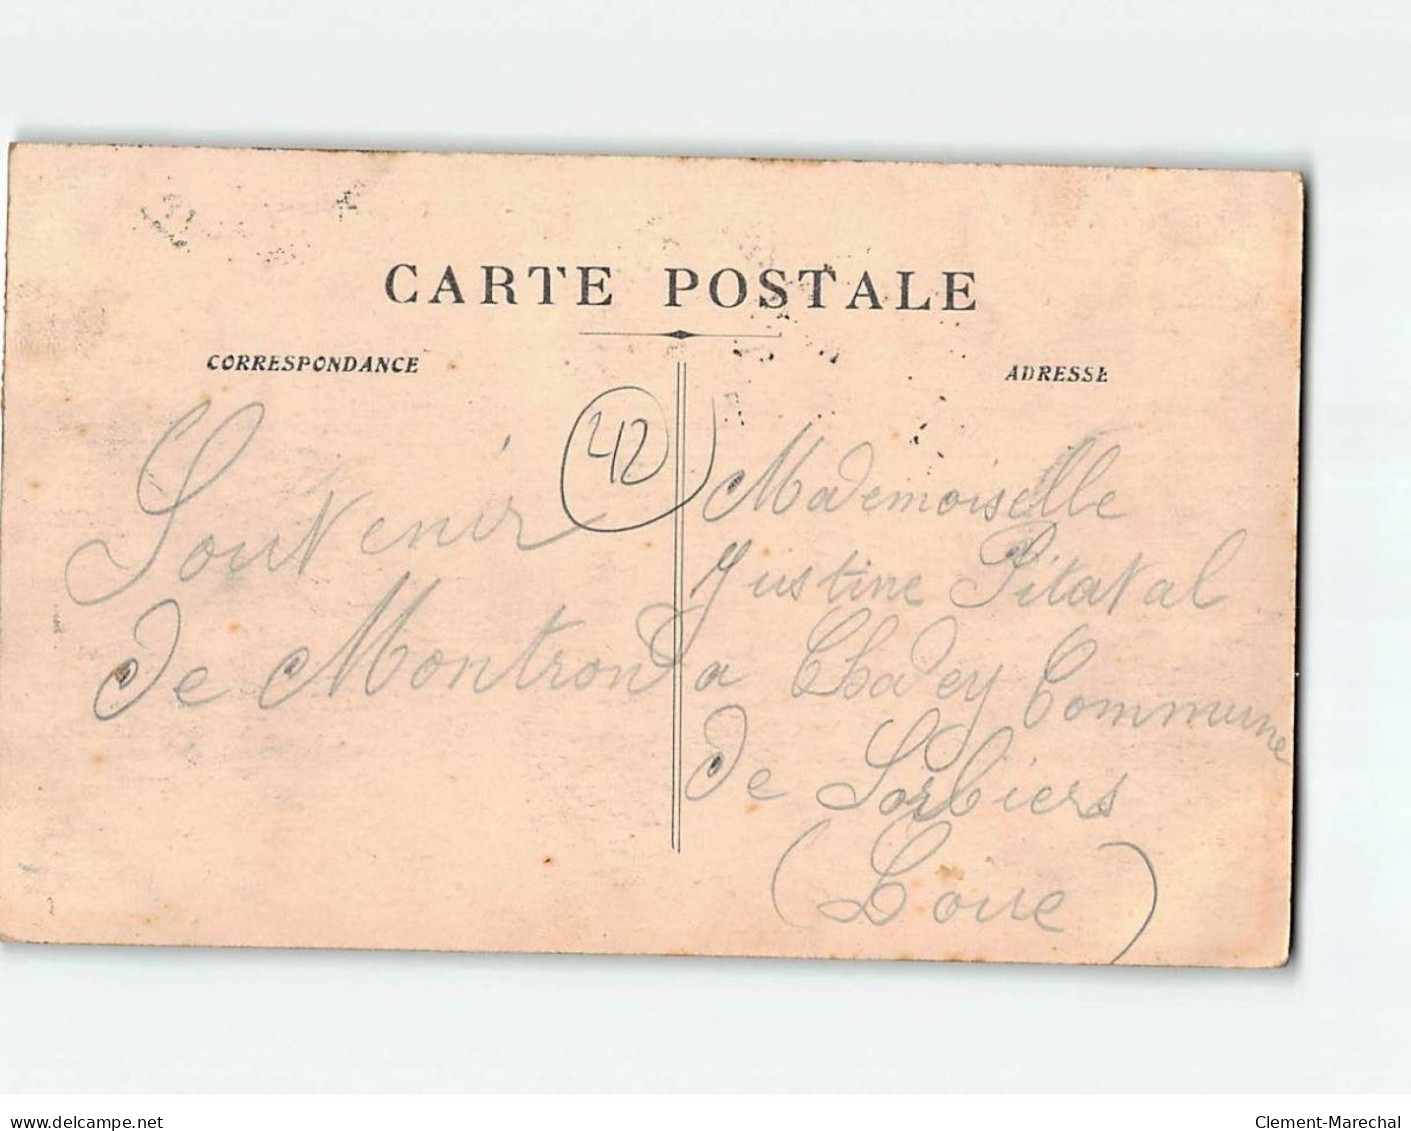 CARTE POSTALE
CORRESPONDANCE
ADRESSE
42
Souvenir
de Montrond
Mademoiselle
Justine Pitaval
a Chadey Commune
de Sorbiers
(Loire)
www.delcampe.net
Clement-Marechal